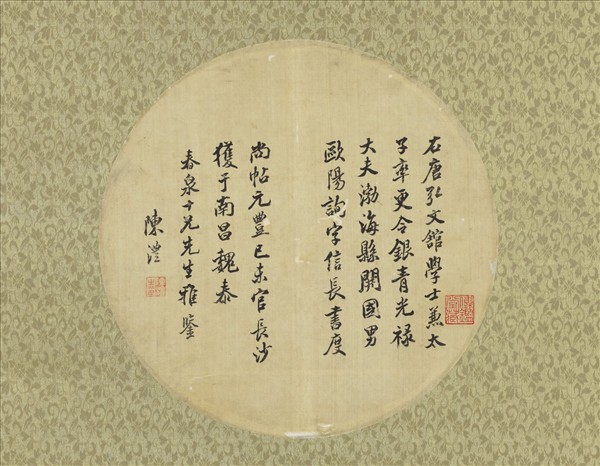 右唐弘文館學士兼太
子率更令銀青光禄
大夫渤海縣開國男
歐陽詢字信長書度
尚帖元豐己未官長沙
獲于南昌魏泰
春泉十兄先生雅鑒
陳澧